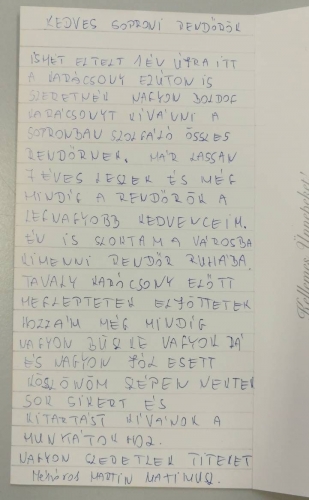 KEDVES SOPRONI RENDŐRÖK
ISMÉT ELTELT 1 ÉV ÚJRA ITT
A KARÁCSONY EZÚTON IS
SZERETNÉK NAGYON BOLDOG
KARÁCSONYT KÍVÁNNI A
SOPRONBAN SZOLGÁLÓ ÖSSZES
RENDŐRNEK. MÁR LASSAN
7 ÉVES LESZEK ÉS MÉG
MINDIG A RENDŐRÖK A
LEGNAGYOBB KEDVENCEIM.
ÉN IS SZOKTAM A VÁROSBA
KIMENNI RENDŐR RUHÁBA.
TAVALY KARÁCSONY ELŐTT
MEGLEPTETEK ELJÖTTETEK
HOZZÁM MÉG MINDIG
NAGYON BÜSZKE VAGYOK RÁ
ÉS NAGYON JÓL ESETT
KÖSZÖNÖM SZÉPEN NEKTEK
SOK SIKERT ÉS
KITARTÁST KÍVÁNOK A
MUNKÁTOKHOZ.
NAGYON SZERETLEK TITEKET
MARTIN MATIMUSZ.
Kellemes Ünnepeket!